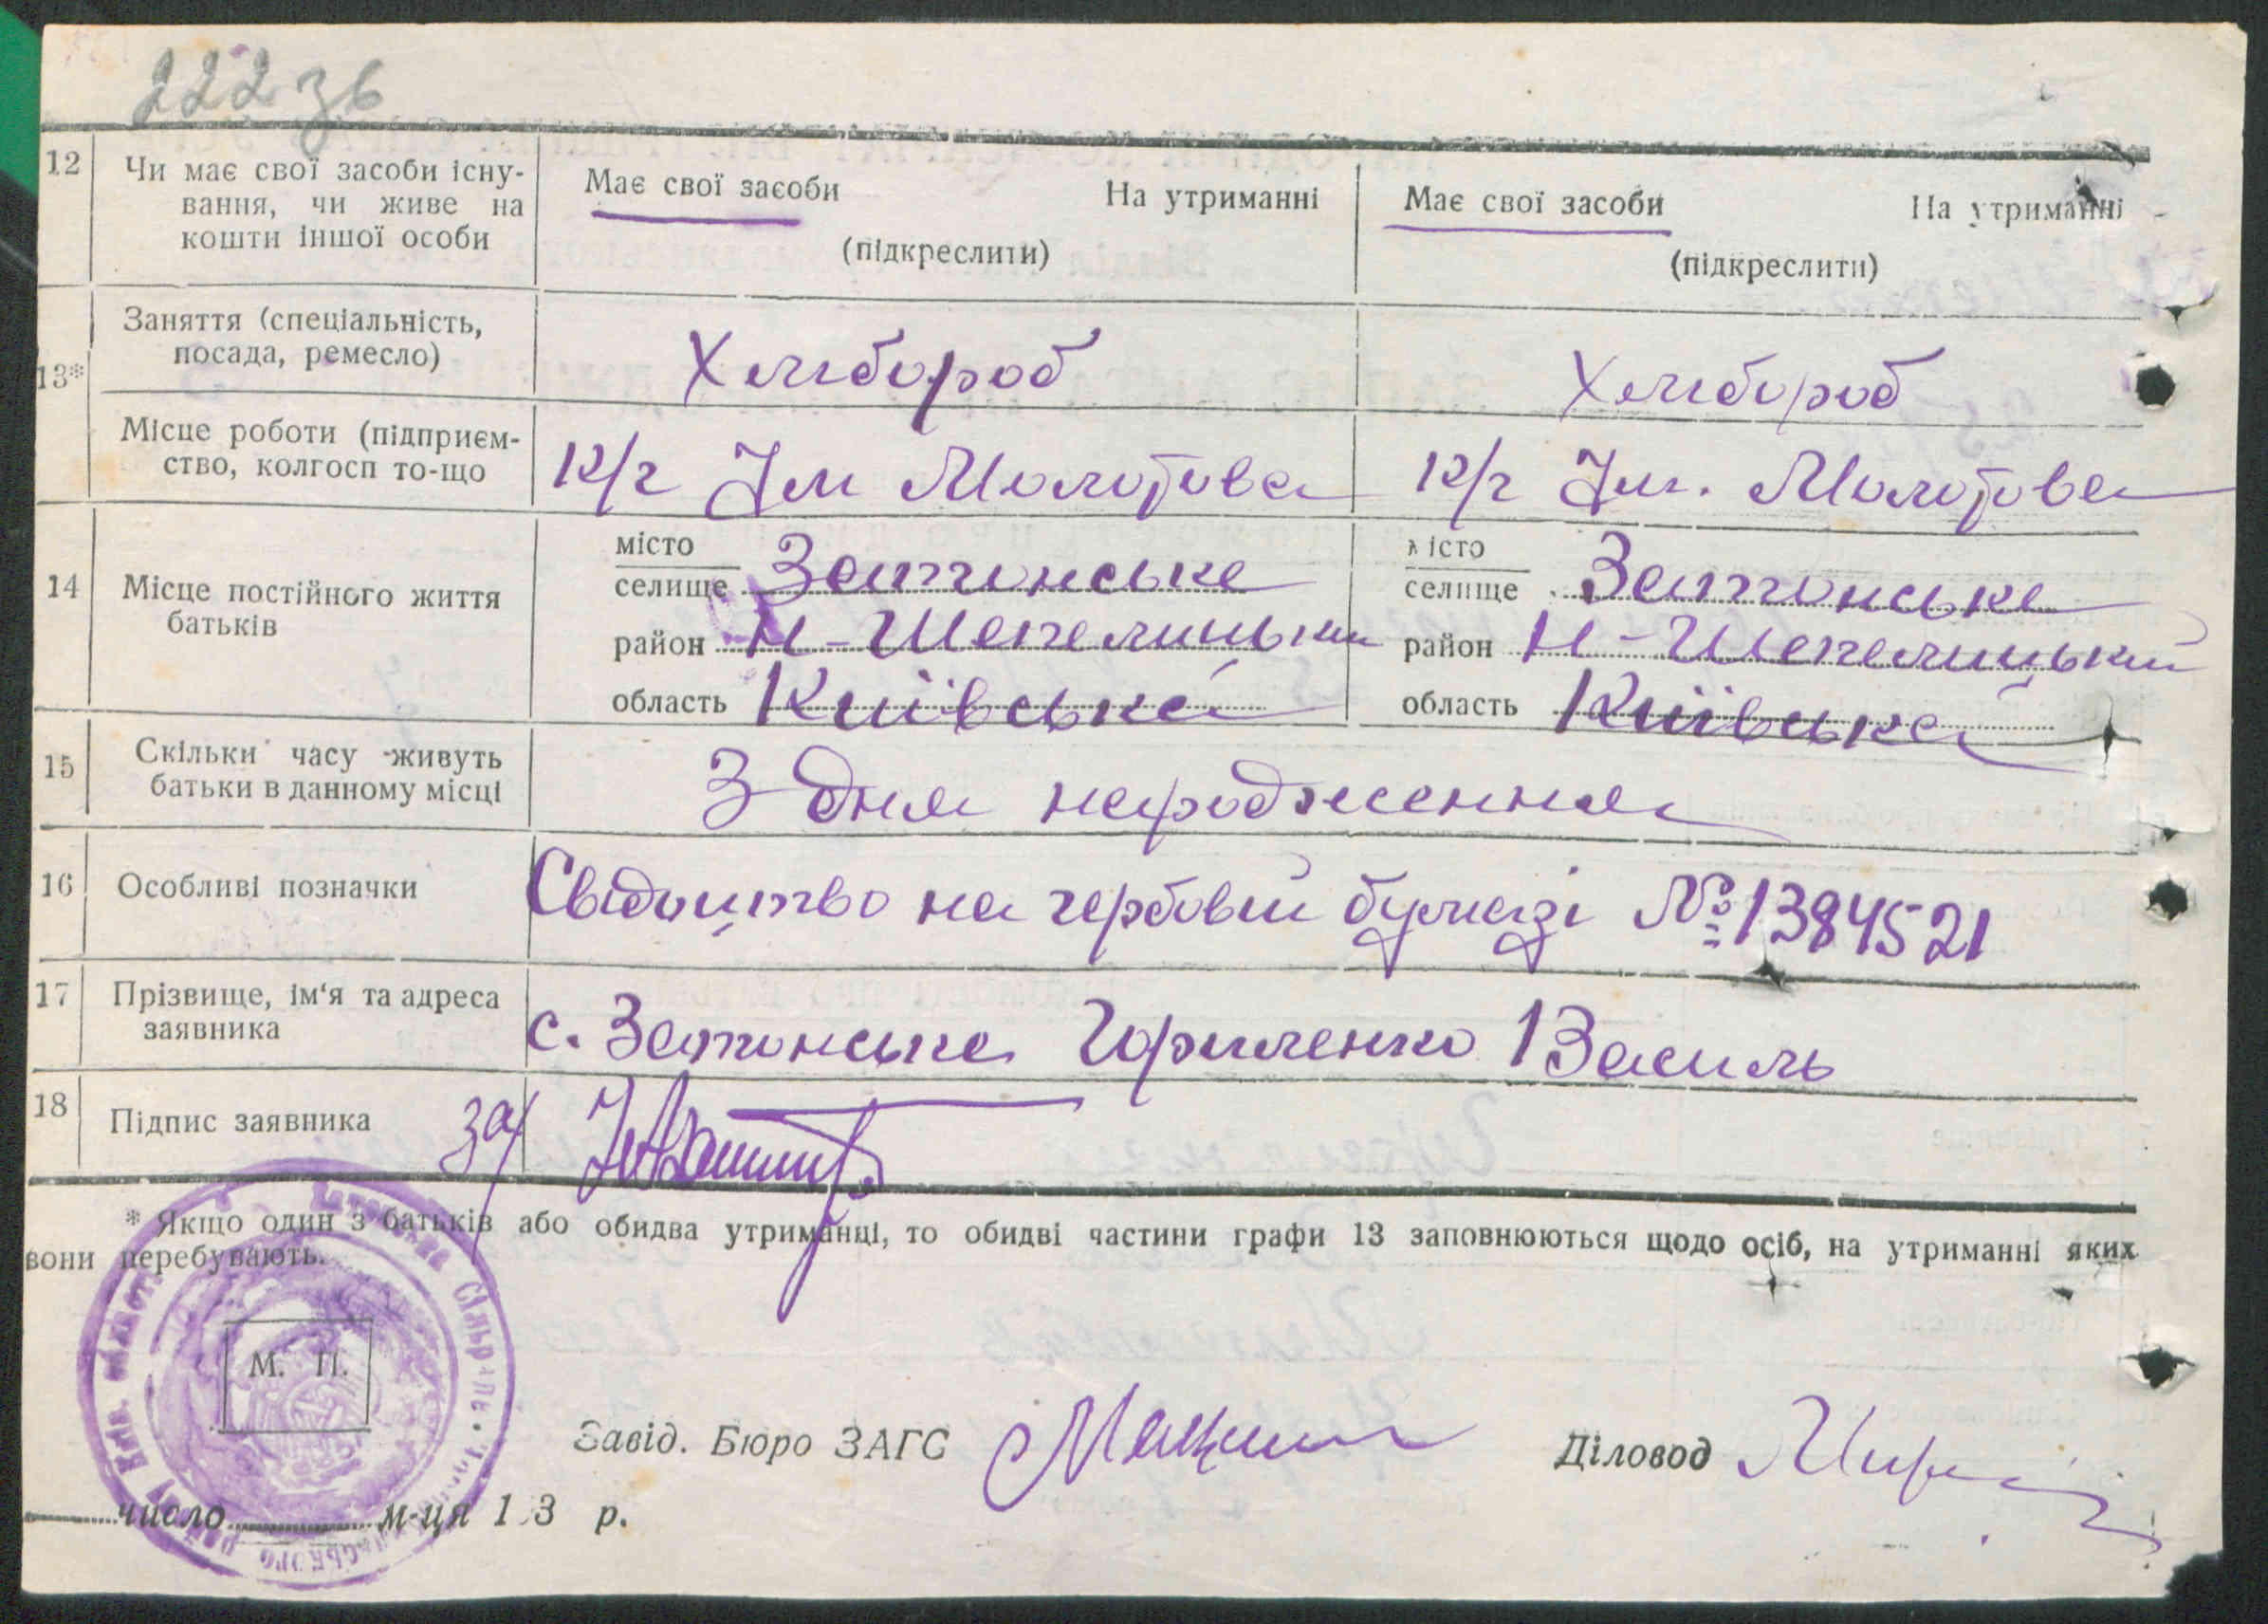 222 зв
12 Чи має свої засоби існу-
вання, чи живе на
кошти іншої особи
Має свої засоби На утриманні
(підкреслити)
Має свої засоби На утриманні
(підкреслити)
13* Заняття (спеціальність,
посада, ремесло)
Хлібороб
Хлібороб
Місце роботи (підприєм-
ство, колгосп то-що
к/г Ім Молотова
к/г Ім. Молотова
14 Місце постійного життя
батьків
місто
селище Затонське
район Н-Шепелицький
область Київська
місто
селище Затонське
район Н-Шепелицький
область Київська
15 Скільки часу живуть
батьки в данному місці
З дня народження
16 Особливі позначки
Свідоцтво на гербовій бумазі № 1384521
17 Прізвище, ім‘я та адреса
заявника
с. Затонське Гориленко Василь
18 Підпис заявника
за
* Якщо один з батьків або обидва утриманці, то обидві частини графи 13 заповнюються щодо осіб, на утриманні яких
вони перебувають.
М. П.
Завід. Бюро ЗАГС
Діловод
число м-ця 1 3 р.